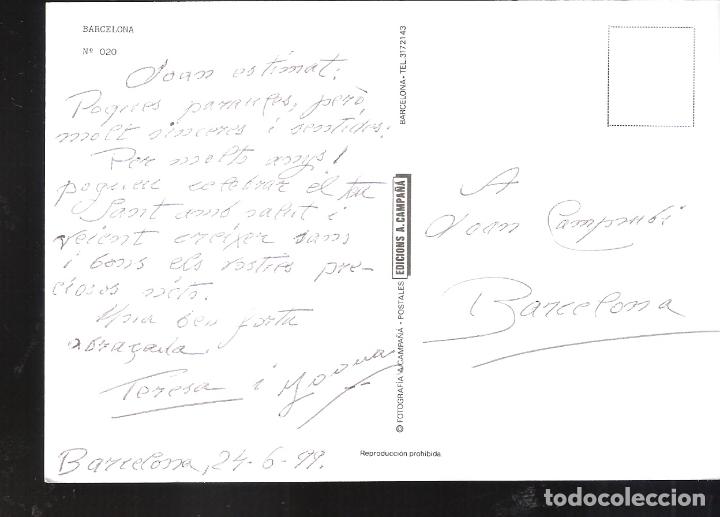 BARCELONA
Nº 020
Joan estimat:
Poques paraules, però,
molt sinceres i sentides:
Per molts anys!
poguem celebrar el teu
Sant amb salut i
veient creixer sans
i bons els vostres pre-
ciosos néts.
Una ben forta
abraçada.
Teresa i
Barcelona, 24-6-99.
BARCELONA - TEL. 3172143
EDICIONS A. CAMPAÑÁ
© FOTOGRAFÍA A. CAMPAÑÁ - POSTALES
Reproducción prohibida.
A
Joan Camprubí
Barcelona
todocoleccion.net